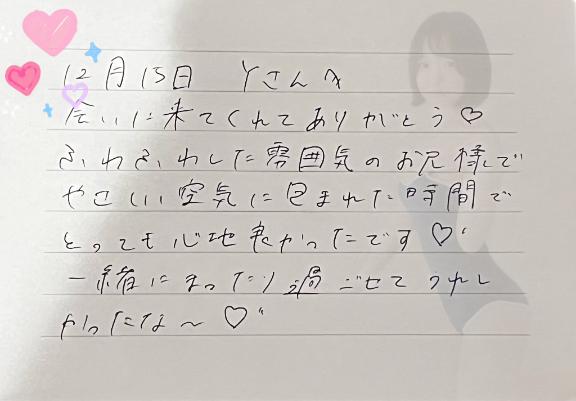 12月15日 Yさんへ
会いに来てくれてありがとう♡
ふわふわした雰囲気のお兄様で
やさしい空気に包まれた時間で
とっても心地良かったです♡"
一緒にまったり過ごせてうれし
かったな〜♡"